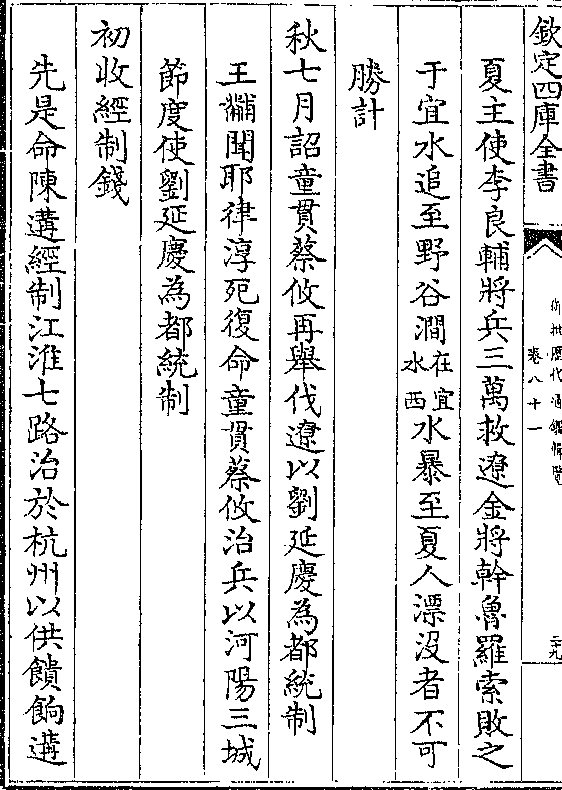 欽定四庫全書
御批歷代通鑑輯覽
卷八十一
二九
夏主使李良輔將兵三萬救遼金將幹魯羅索敗之
于宜水追至野谷澗在宜水西水暴至夏人漂沒者不可
勝計
秋七月詔童貫蔡攸再舉伐遼以劉延慶為都統制
王黼聞耶律淳死復命童貫蔡攸治兵以河陽三城
節度使劉延慶為都統制
初收經制錢
先是命陳遘經制江淮七路治於杭州以供饋餉遘